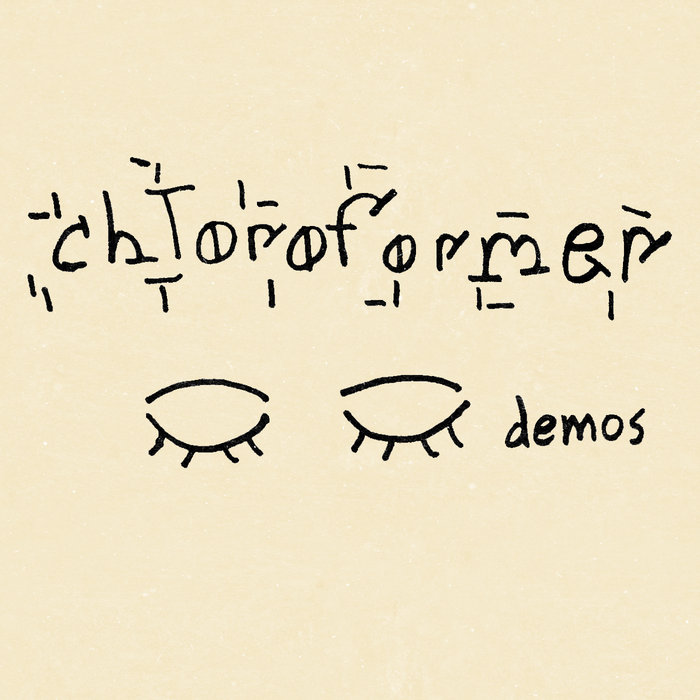 chloroformer
demos